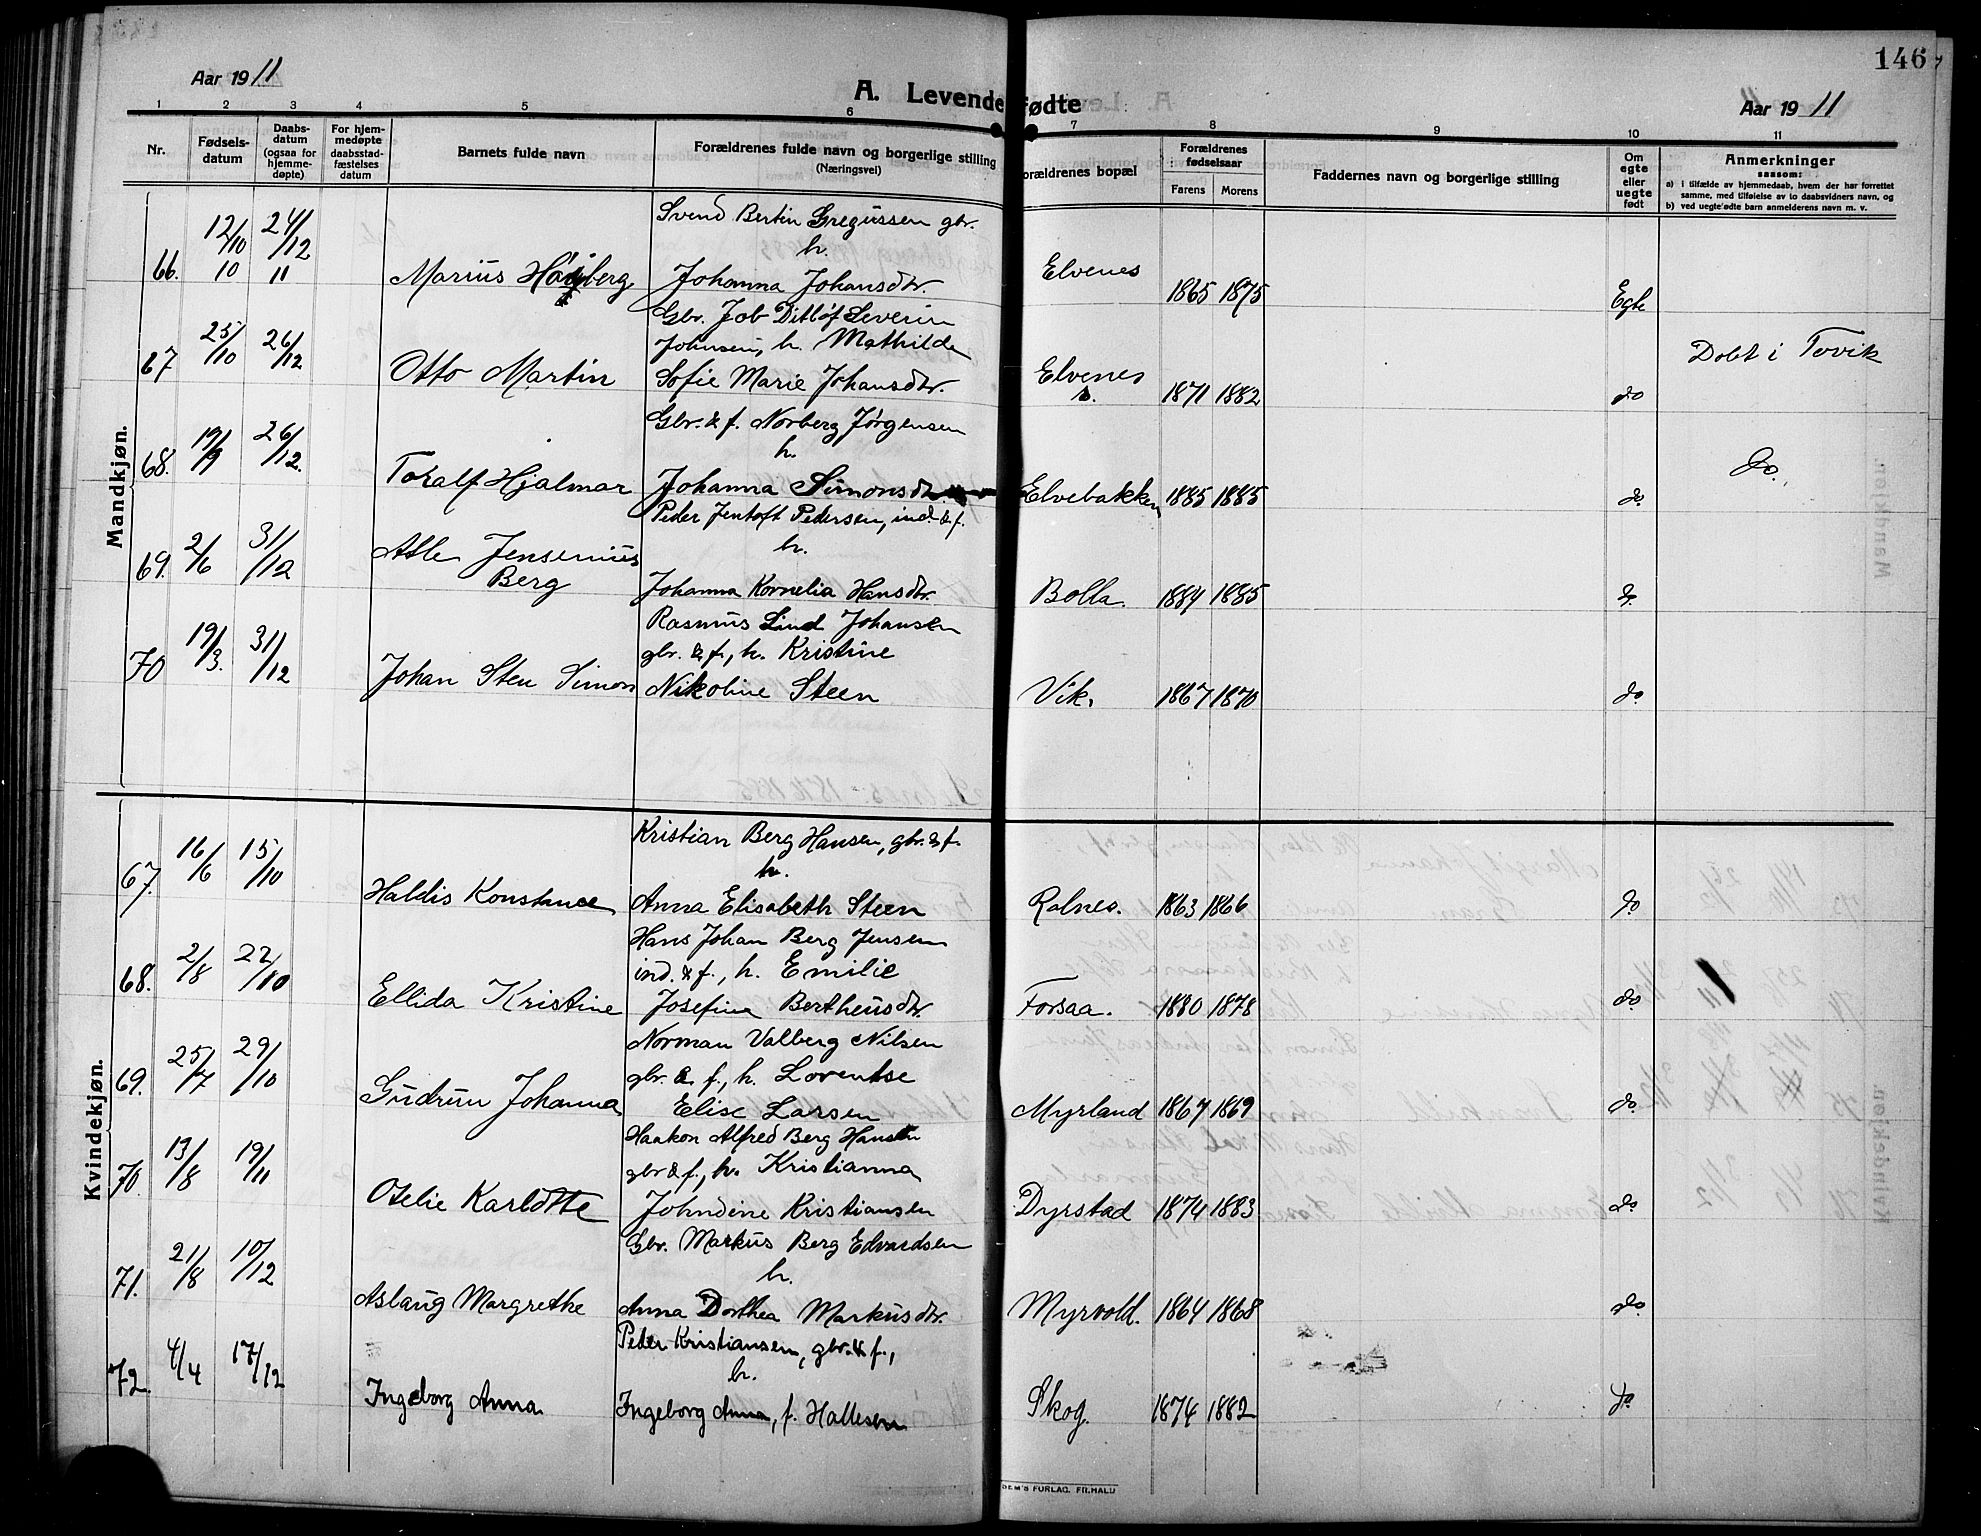 146
Aar 1911
A. Levendefødte
Aar 1911
1 2 3 4 5 6 7 8 9 10 11
Nr.
Fødselsdatum
Daabsdatum (ogsaa for hjemmedøpte)
For hjemmedøpte daabsstadfæstelses datum
Barnets fulde navn
Forældrenes fulde navn og borgerlige stilling (Næringsvei)
Forældrenes bopæl
Forældrenes fødselsaar
Farens Morens
Faddernes navn og borgerlige stilling
Om egte eller uegte født
Anmerkninger
saasom:
a) i tilfælde av hjemmedaab, hvem der har forrettet samme, med tilføielse av to daabsvidners navn, og
b) ved uegte fødte barn anmelderens navn m. v.
Mandkjøn.
Svend Bertin Gregussen gbr.
h.
66. 12/10 10 24/12 11 Marius Høgberg Johanna Johansdtr. Elvenes 1865 1875 Egte
Gbr. Job Ditlof Severin
Johnsen, h. Mathilde
67 25/10 26/12 Otto Martin Sofie Marie Johansdtr. Elvenes 1871 1882 do Døbt i Tovik
Gbr. & f. Norberg Jørgensen
h.
68. 19/9 26/12. Toralf Hjalmar Johanna Simonsdtr. Elvebakken 1885 1885 do do.
Peder Jentoft Pedersen, ind. & f.
h.
69. 2/6 31/12 Atle Jensenius
Berg Johanna Kornelia Hansdtr. Bolla. 1884 1885 do.
Rasmus Lind Johansen
gbr. & f., h. Kristine
70 19/3. 31/12 Johan Sten Simon Nikoline Steen Vik. 1867 1870 do.
Kvindekjøn.
Kristian Berg Hansen, gbr. & f.
h.
67. 16/6 15/10 Haldis Konstance Anna Elisabeth Steen Rolnes. 1863 1866 do
Hans Johan Berg Jensen
ind. & f., h. Emilie
68. 2/8 22/10 Ellida Kristine Josefine Bertheusdtr. Forsaa. 1880 1878 do.
Norman Valberg Nilsen
gbr. & f., h. Lorentse
69. 25/7 29/10 Gudrun Johanna Elise Larsen Myrland 1867 1869 do.
Haakon Alfred Berg Hansen
gbr & f., h. Kristianna
70. 13/8 19/11 Otelie Karlotte Johndine Kristiansen Dyrstad 1874 1883 do.
Gbr. Markus Berg Edvardsen
h.
71. 21/8 10/12 Aslaug Margrethe Anna Dorthea Markusdtr. Myrvold. 1864 1868 do.
Peder Kristiansen, gbr. & f.,
h.
72. 4/4 17/12 Ingeborg Anna Ingeborg Anna, f. Hallesen Skog. 1874 1882 do.
DEM'S FORLAG. FR.HALD